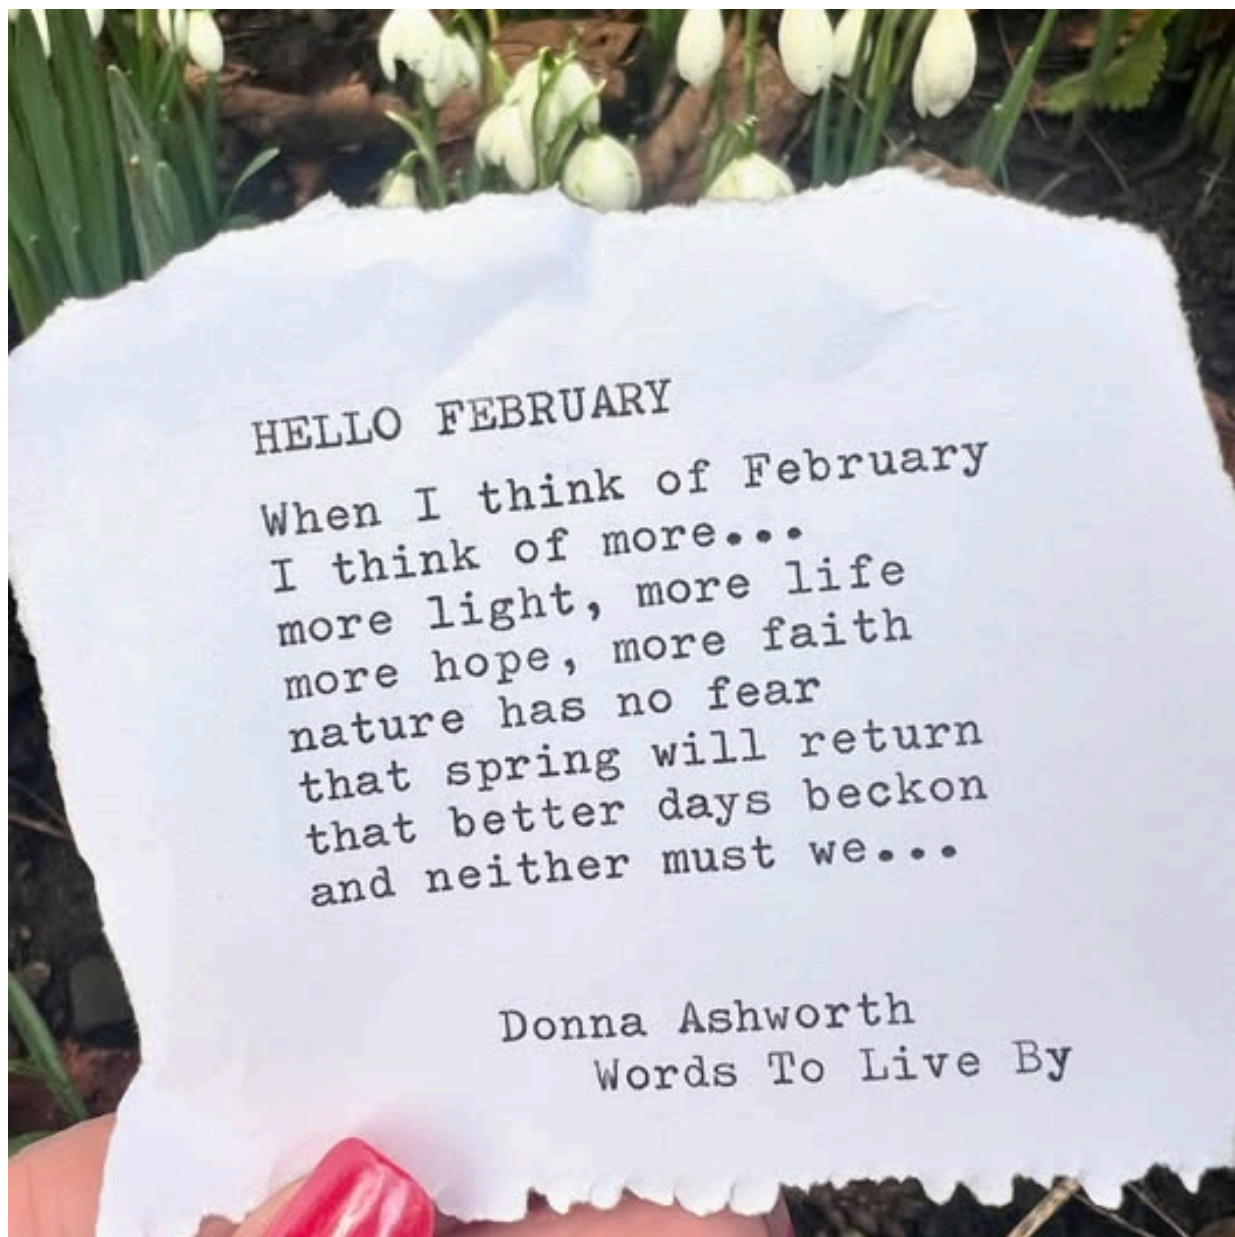 HELLO FEBRUARY
When I think of February
I think of more...
more light, more life
more hope, more faith
nature has no fear
that spring will return
that better days beckon
and neither must we...
Donna Ashworth
Words To Live By